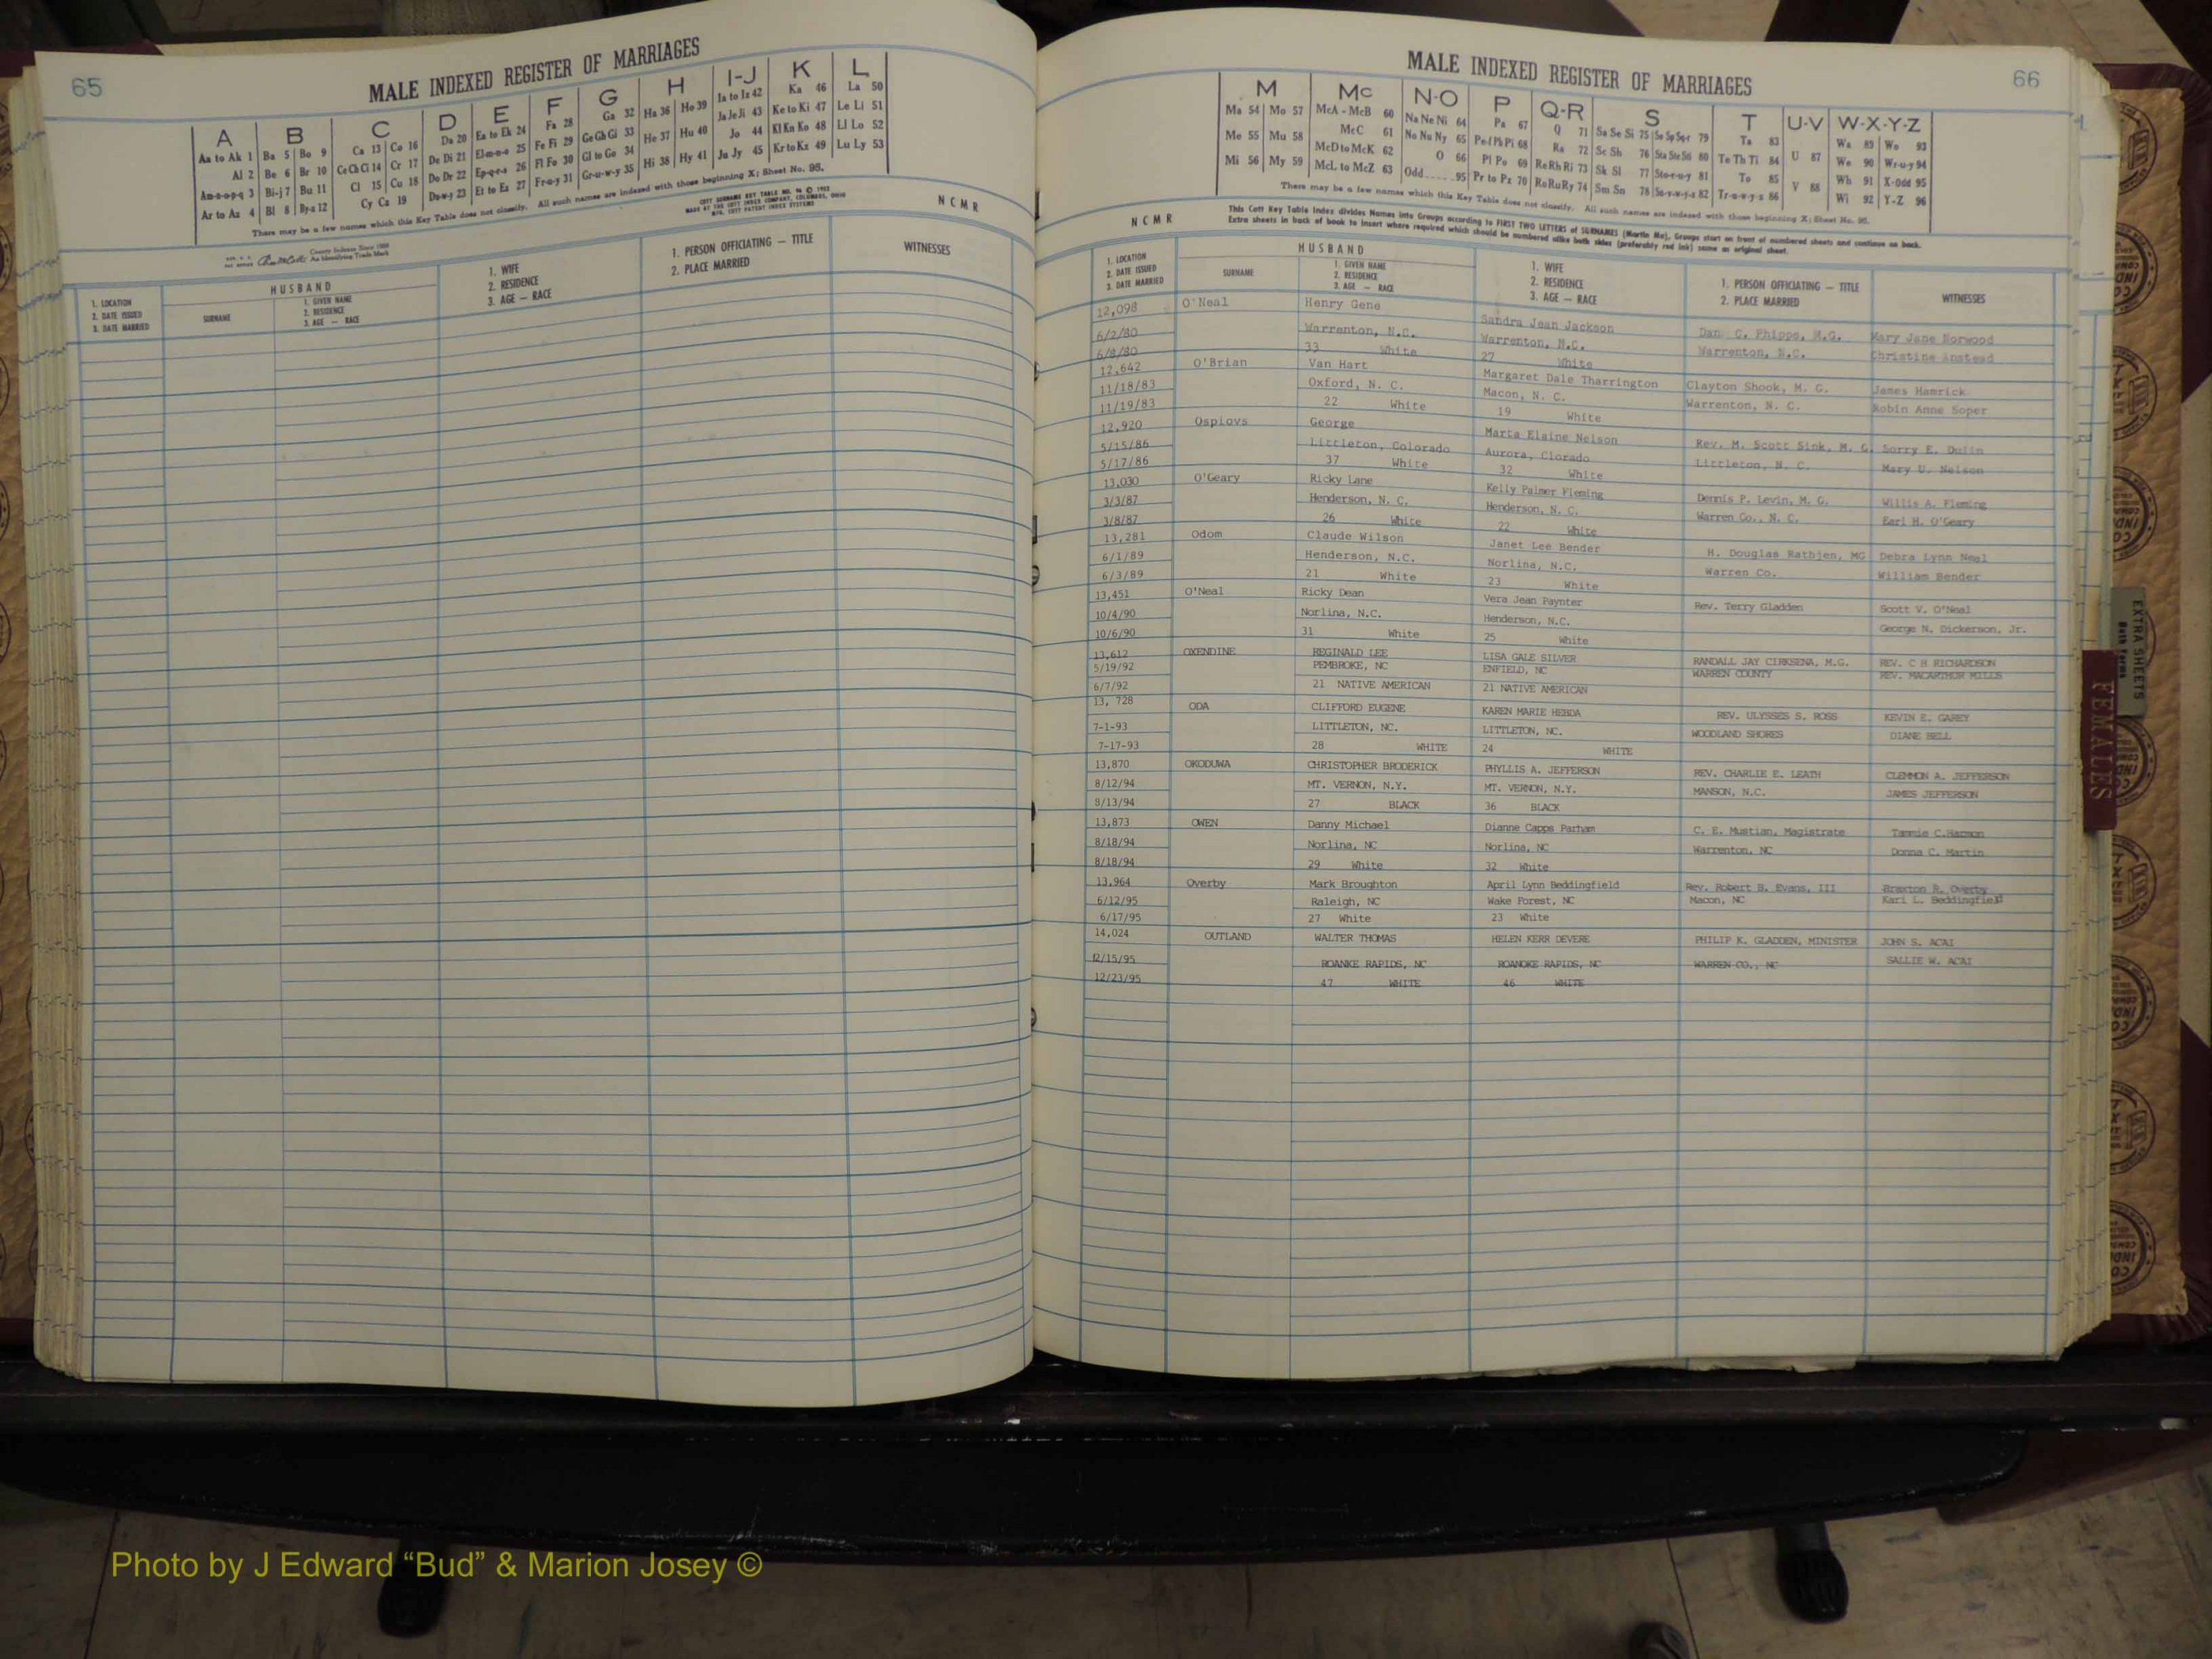 65
MALE INDEXED REGISTER OF MARRIAGES
A B C D E F G H I-J K L
Aa to Ak 1 Ba 5 Bo 9 Ca 13 Co 16 Da 20 Ea to Ek 24 Fa 28 Ga 32 Ha 36 Ho 39 Ia to Iz 42 Ka 46 La 50
Al 2 Be 6 Br 10 Ce Ch Ci 14 Cr 17 De Di 21 El-m-n-o 25 Fe Fi 29 Ge Gh Gi 33 He 37 Hu 40 Ja Je Ji 43 Ke to Ki 47 Le Li 51
Am-n-o-p-q 3 Bi-j 7 Bu 11 Cl 15 Cu 18 Do Dr 22 Ep-q-r-s 26 Fl Fo 30 Gl to Go 34 Hi 38 Hy 41 Jo 44 Kl Kn Ko 48 Ll Lo 52
Ar to Az 4 Bl 8 By-z 12 Cy Cz 19 Du-w-y 23 Et to Ez 27 Fr-u-y 31 Gr-u-w-y 35 Ju Jy 45 Kr to Kz 49 Lu Ly 53
There may be a few names which this Key Table does not classify. All such names are indexed with those beginning X; Sheet No. 95.
NCMR
HUSBAND
1. LOCATION
2. DATE ISSUED
3. DATE MARRIED
SURNAME
1. GIVEN NAME
2. RESIDENCE
3. AGE — RACE
1. WIFE
2. RESIDENCE
3. AGE — RACE
1. PERSON OFFICIATING — TITLE
2. PLACE MARRIED
WITNESSES
66
MALE INDEXED REGISTER OF MARRIAGES
M Mc N-O P Q-R S T U-V W-X-Y-Z
Ma 54 Mo 57 McA - McB 60 Na Ne Ni 64 Pa 67 Q 71 Sa Se Si 75 So Sp Sq-r 79 Ta 83 Wa 89 Wo 93
Me 55 Mu 58 McC 61 No Nu Ny 65 Pe-f Ph Pi 68 Ra 72 Sc Sh 76 Sta Ste Sti 80 Te Th Ti 84 U 87 We 90 Wr-u-y 94
Mi 56 My 59 McD to McK 62 O 66 Pl Po 69 Re Rh Ri 73 Sk Sl 77 Sto-r-u-y 81 To 85 V 88 Wh 91 X-Odd 95
McL to McZ 63 Odd 95 Pr to Pz 70 Ro Ru Ry 74 Sm Sn 78 Su-v-w-y-z 82 Tr-u-w-y-z 86 Wi 92 Y-Z 96
There may be a few names which this Key Table does not classify. All such names are indexed with those beginning X; Sheet No. 95.
NCMR
This Cott Key Table Index divides Names into Groups according to FIRST TWO LETTERS of SURNAMES (Martin Ma), Groups start on front of numbered sheets and continue on back.
Extra sheets in back of book to insert where required which should be numbered alike both sides (preferably red ink) same as original sheet.
HUSBAND
1. LOCATION
2. DATE ISSUED
3. DATE MARRIED
SURNAME
1. GIVEN NAME
2. RESIDENCE
3. AGE — RACE
1. WIFE
2. RESIDENCE
3. AGE — RACE
1. PERSON OFFICIATING — TITLE
2. PLACE MARRIED
WITNESSES
12,098 O'Neal Henry Gene Sandra Jean Jackson Dan C. Phipps, M.G. Mary Jane Norwood
6/2/80 Warrenton, N.C. Warrenton, N.C. Warrenton, N.C. Christine Anstead
6/8/80 33 White 27 White
12,642 O'Brian Van Hart Margaret Dale Tharrington Clayton Shook, M. G. James Hamrick
11/18/83 Oxford, N. C. Macon, N. C. Warrenton, N. C. Robin Anne Soper
11/19/83 22 White 19 White
12,920 Ospiovs George Marta Elaine Nelson Rev. M. Scott Sink, M. G. Sorry E. Dulin
5/15/86 Littleton, Colorado Aurora, Clorado Littleton, N. C. Mary U. Nelson
5/17/86 37 White 32 White
13,030 O'Geary Ricky Lane Kelly Palmer Fleming Dennis P. Levin, M. G. Willis A. Fleming
3/3/87 Henderson, N. C. Henderson, N. C. Warren Co., N. C. Earl H. O'Geary
3/8/87 26 White 22 White
13,281 Odom Claude Wilson Janet Lee Bender H. Douglas Rathjen, MG Debra Lynn Neal
6/1/89 Henderson, N.C. Norlina, N.C. Warren Co. William Bender
6/3/89 21 White 23 White
13,451 O'Neal Ricky Dean Vera Jean Paynter Rev. Terry Gladden Scott V. O'Neal
10/4/90 Norlina, N.C. Henderson, N.C. George N. Dickerson, Jr.
10/6/90 31 White 25 White
13,612 OXENDINE REGINALD LEE LISA GALE SILVER RANDALL JAY CIRKSENA, M.G. REV. C H RICHARDSON
5/19/92 PEMBROKE, NC ENFIELD, NC WARREN COUNTY REV. MACARTHUR MILLS
6/7/92 21 NATIVE AMERICAN 21 NATIVE AMERICAN
13, 728 ODA CLIFFORD EUGENE KAREN MARIE HEBDA REV. ULYSSES S. ROSS KEVIN E. GAREY
7-1-93 LITTLETON, NC. LITTLETON, NC. WOODLAND SHORES DIANE BELL
7-17-93 28 WHITE 24 WHITE
13,870 OKODUWA CHRISTOPHER BRODERICK PHYLLIS A. JEFFERSON REV. CHARLIE E. LEATH CLEMMON A. JEFFERSON
8/12/94 MT. VERNON, N.Y. MT. VERNON, N.Y. MANSON, N.C. JAMES JEFFERSON
8/13/94 27 BLACK 36 BLACK
13,873 OWEN Danny Michael Dianne Capps Parham C. E. Mustian, Magistrate Tammie C.Harmon
8/18/94 Norlina, NC Norlina, NC Warrenton, NC Donna C. Martin
8/18/94 29 White 32 White
13,964 Overby Mark Broughton April Lynn Beddingfield Rev. Robert B. Evans, III Braxton R. Overby
6/12/95 Raleigh, NC Wake Forest, NC Macon, NC Kari L. Beddingfield
6/17/95 27 White 23 White
14,024 OUTLAND WALTER THOMAS HELEN KERR DEVERE PHILIP K. GLADDEN, MINISTER JOHN S. ACAI
12/15/95 ROANKE RAPIDS, NC ROANOKE RAPIDS, NC WARREN CO., NC SALLIE W. ACAI
12/23/95 47 WHITE 46 WHITE
EXTRA SHEETS
FEMALES
Photo by J Edward “Bud” & Marion Josey ©